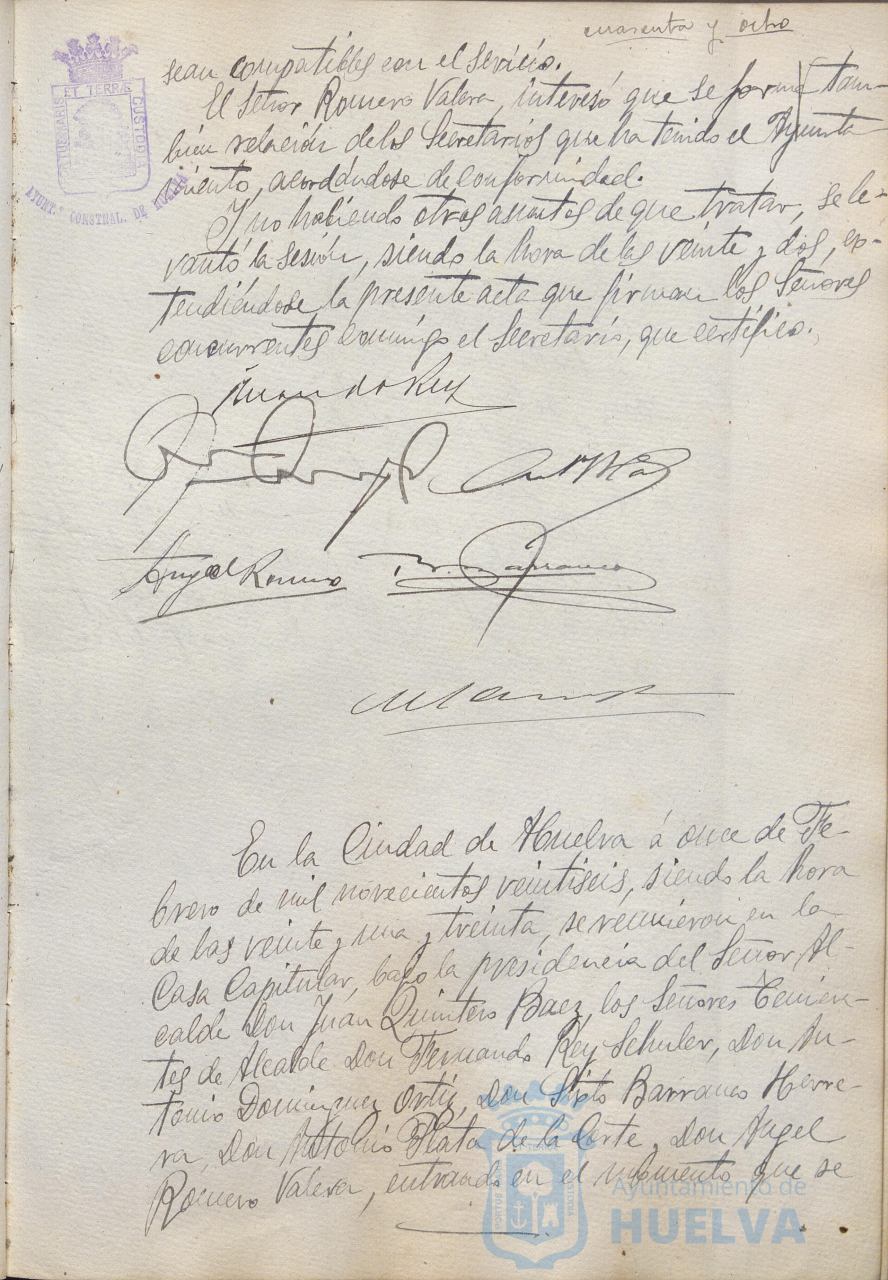 cuarenta y ocho
sean compatibles con el servicio.
El Señor Romero Valera, interesó que se forme tam-
bien relación de los Secretarios que ha tenido el Ayunta
miento, acordándose de conformidad.
Y no habiendo otros asuntos de que tratar, se le-
vantó la sesión, siendo la hora de las veinte y dos, ex-
tendiéndose la presente acta que firman los Señores
concurrentes conmigo el Secretario, que certifico.
Fernando Rey
Angel Romero
Barranco
En la Ciudad de Huelva á once de Fe-
brero de mil novecientos veintiseis, siendo la hora
de las veinte y una y treinta, se reunieron en la
Casa Capitular, bajo la presidencia del Señor Al-
calde Don Juan Quintero Baez, los Señores Tenien-
tes de Alcalde Don Fernando Rey Schuler, Don An-
tonio Dominguez Ortiz, Don Sixto Barranco Herre-
ra, Don Antonio Plata de la Corte, Don Angel
Romero Valera, entrando en el momento que se
PORTUS MARIS ET TERRÆ CUSTODIA
AYUNT.º CONSTNAL. DE HUELVA
Ayuntamiento de
HUELVA